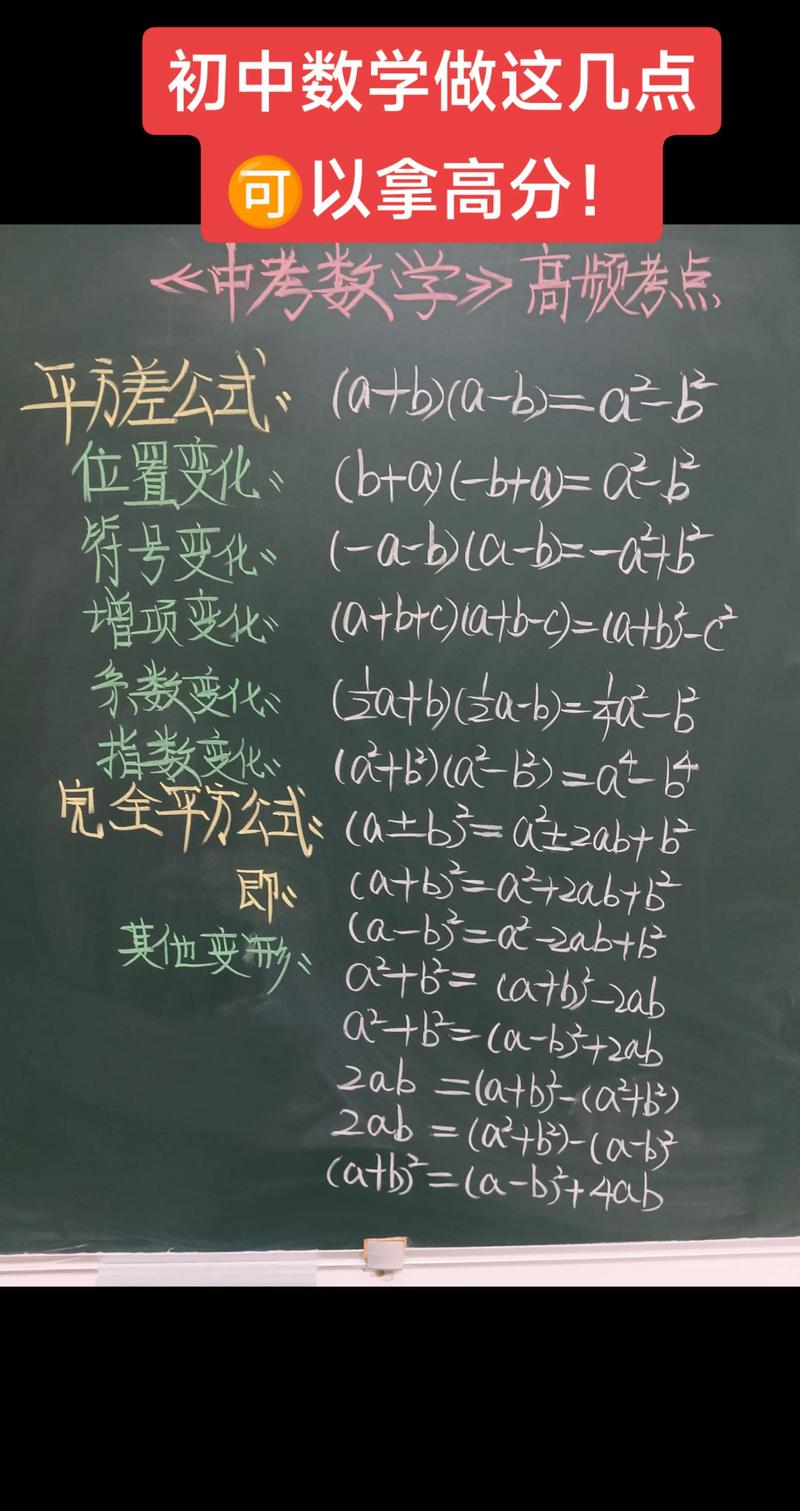 初中数学做这几点
可以拿高分！
《中考数学》高频考点
平方差公式: (a+b)(a-b)=a²-b²
位置变化: (b+a)(-b+a)=a²-b²
符号变化: (-a-b)(a-b)=-a²+b²
增项变化: (a+b+c)(a+b-c)=(a+b)²-c²
系数变化: (½a+b)(½a-b)=¼a²-b²
指数变化: (a²+b²)(a²-b²)=a⁴-b⁴
完全平方公式: (a±b)²=a²±2ab+b²
即: (a+b)²=a²+2ab+b²
(a-b)²=a²-2ab+b²
其他变形: a²+b²=(a+b)²-2ab
a²+b²=(a-b)²+2ab
2ab=(a+b)²-(a²+b²)
2ab=(a²+b²)-(a-b)²
(a+b)²=(a-b)²+4ab